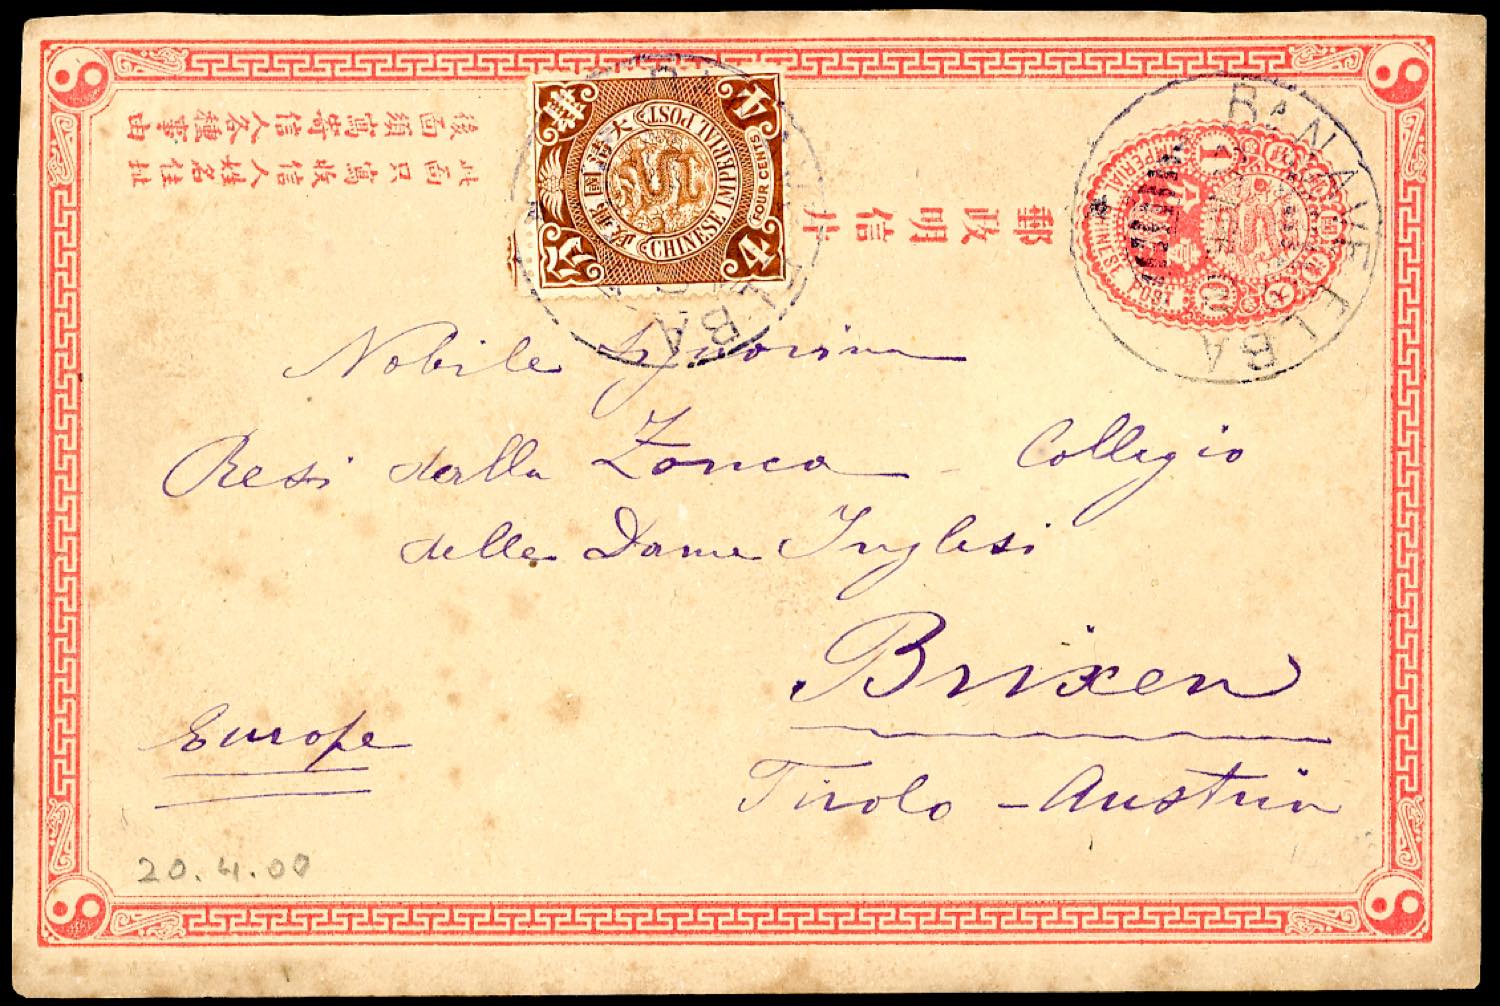 後面須寫寄信人各種事由
此面只寫收信人姓名住址
郵政明信片
大清國郵政
CHINESE IMPERIAL POST
FOUR CENTS
4
4
CHINESE IMPERIAL POST
1
BA
BA
R.N. NAVE ELBA
Nobile Signorina
Resi dalla Zonca - Collegio
delle Dame Inglesi
Brixen
Tirolo - Austria
Europe
20.4.00